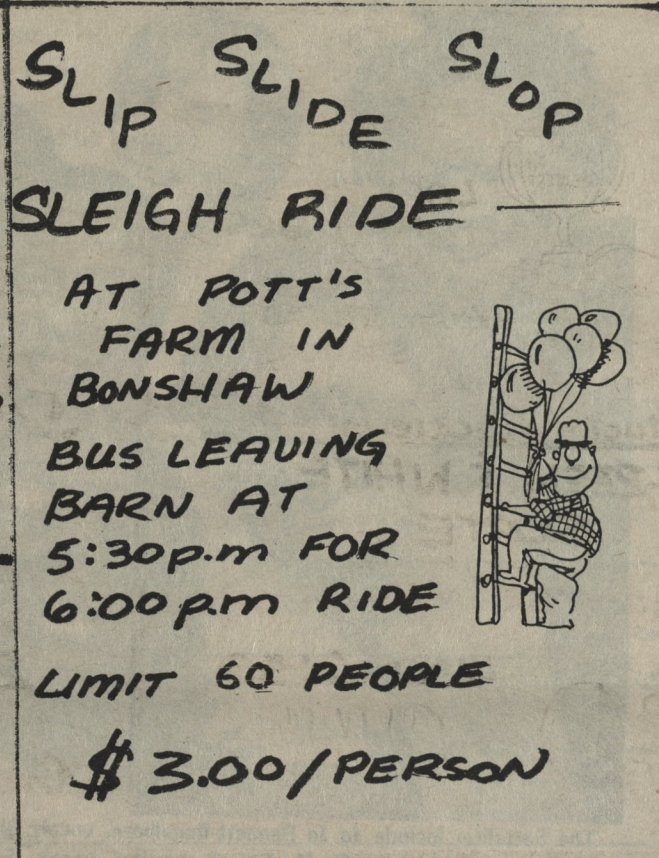 SLIP SLIDE SLOP
SLEIGH RIDE —
AT POTT'S
FARM IN
BONSHAW
BUS LEAVING
BARN AT
5:30p.m FOR
6:00p.m RIDE
LIMIT 60 PEOPLE
$3.00/PERSON